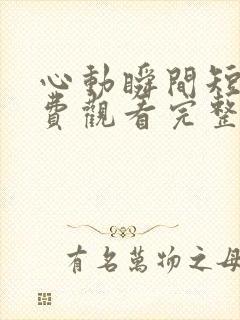 心動瞬間短
費觀看完整
有名萬物之母